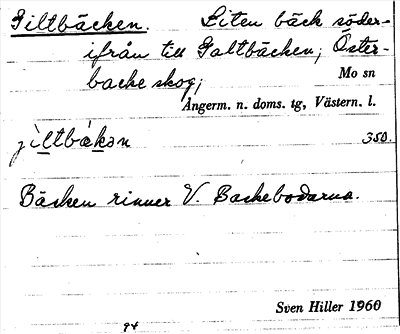 Giltbäcken. Liten bäck söder-
ifrån till Galtbäcken; Öster-
backe skog; Mo sn
Ångerm. n. doms. tg, Västern. l.
350.
Bäcken rinner V. Backebodarna.
Sven Hiller 1960